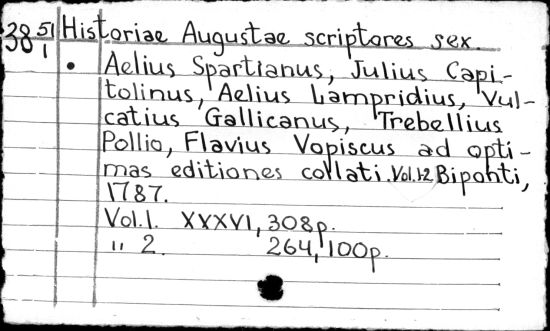 38 51 Historiae Augustae scriptores sex.
38 1
• Aelius Spartianus, Julius Capi-
tolinus, Aelius Lampridius, Vul-
catius Gallicanus, Trebellius
Pollio, Flavius Vopiscus ad opti-
mas editiones collati. Vol.1-2. Biponti,
1787.
Vol. 1. XXXVI, 308p.
" 2. 264, 100p.